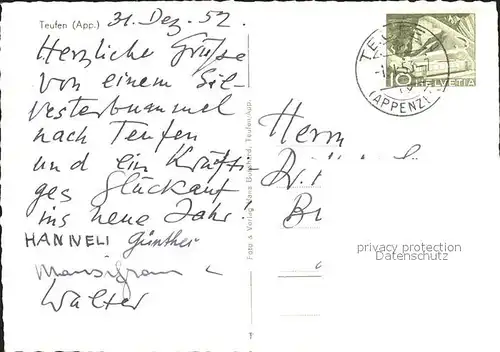 Teufen (App.)
31. Dez. 52.
Herzliche Grüße
von einem Sil-
vesterbummel
nach Teufen
und ein Kräfti-
ges Glückauf
ins neue Jahr.
HANNELI Günther
Walter
Foto & Verlag Hans Teufen/App.
10 HELVETIA
TEUFEN
(APPENZ.)
Herrn
D
B
privacy protection
Datenschutz